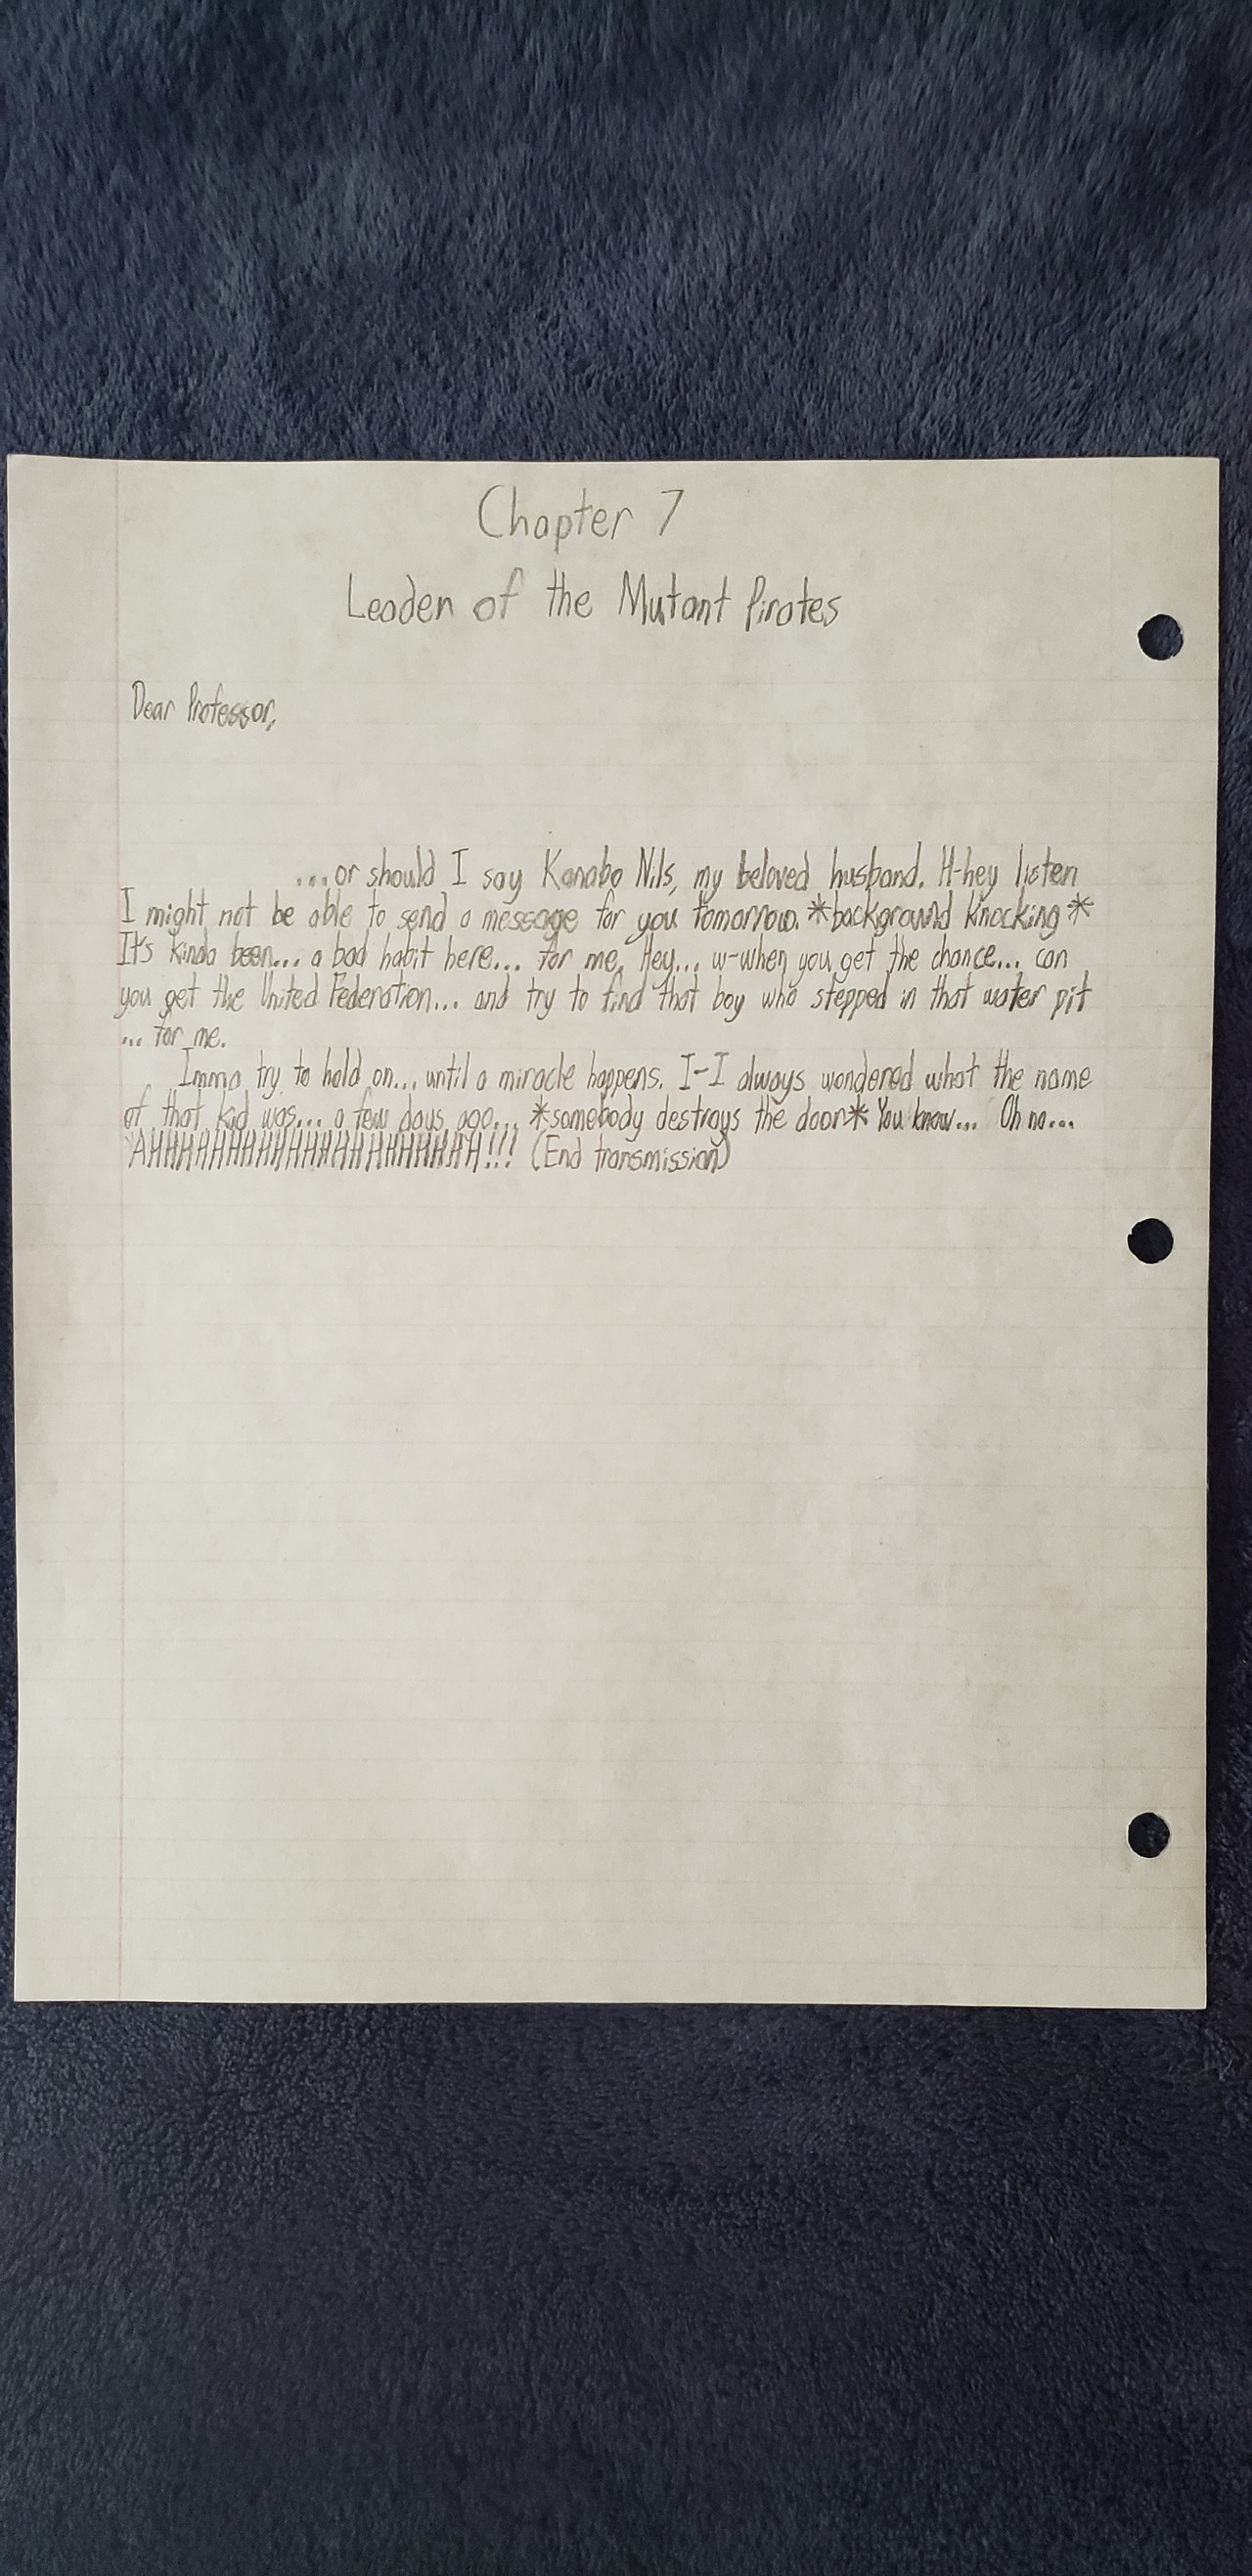 Chapter 7
Leader of the Mutant Pirates
Dear Professor,
...or should I say Kanabo Nils, my beloved husband. H-hey listen
I might not be able to send a message for you tomorrow. *background knocking*
It's kinda been... a bad habit here... for me. Hey... w-when you get the chance... can
you get the United Federation... and try to find that boy who stepped in that water pit
... for me.
Imma try to hold on... until a miracle happens. I-I always wondered what the name
of that kid was... a few days ago... *somebody destroys the door* You know... Oh no...
AHHHHHHHHHHHHHHHHHHHHH!!! (End transmission)